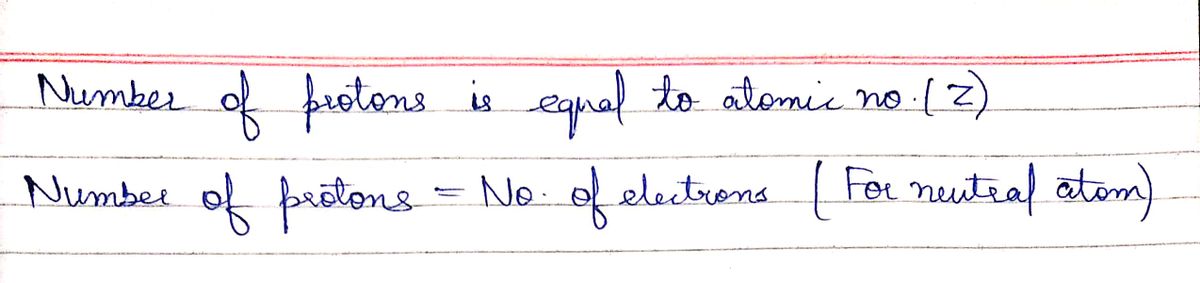 Number of protons is equal to atomic no. (Z)
Number of protons = No. of electrons (For neutral atom)